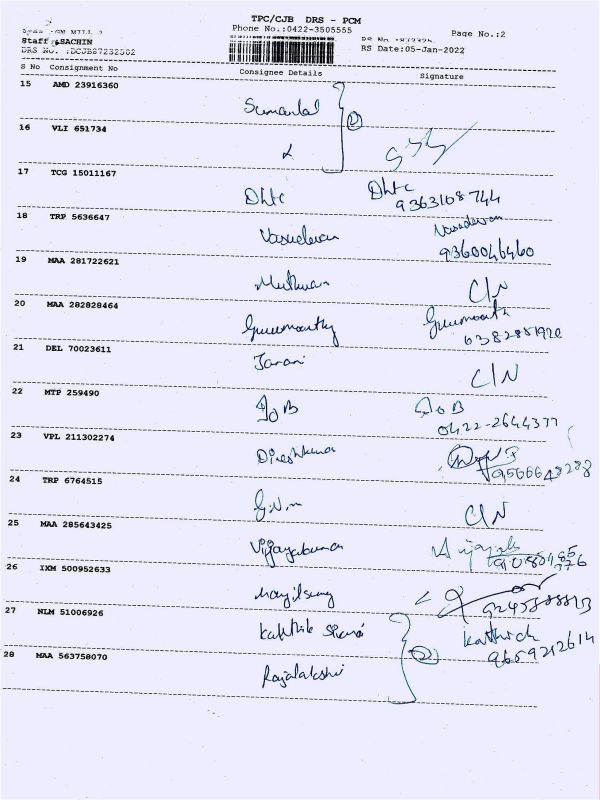 TPC/CJB DRS - PCM
Phone No.:0422-3505555
Page No.:2
Staff :SACHIN
RS Date:05-Jan-2022
DRS No. :DCJB87232502
S No Consignment No Consignee Details Signature
15 AMD 23916360
Sumanlal
2
16 VLI 651734
17 TCG 15011167
Dhtc Dhtc
9363108744
18 TRP 5636647
Vasudevan Vasudevan
9360046460
19 MAA 281722621
C/N
20 MAA 282828464
Gurumoorthy Gurumoorth
6382851920
21 DEL 70023611
Janani C/N
22 MTP 259490
IOB IOB
0422-2644377
23 VPL 211302274
Dineshkumar
9566648288
24 TRP 6764515
C/N
25 MAA 285643425
Vijayakumar
26 IXM 500952633
27 NLM 51006926
Karthick
9659212614
2
28 MAA 563758070
Rajalakshmi